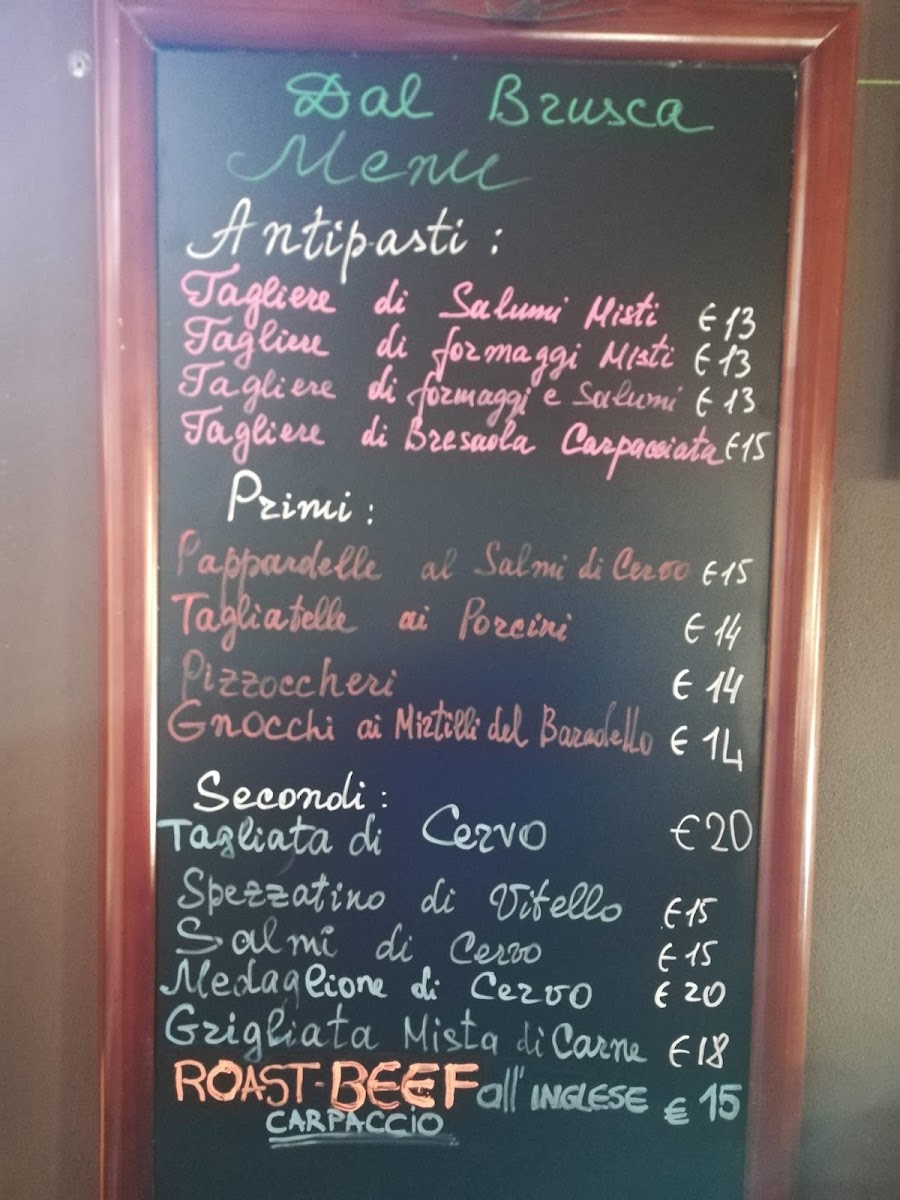 Dal Brusca
Menu
Antipasti :
Tagliere di Salumi Misti € 13
Tagliere di formaggi Misti € 13
Tagliere di formaggi e Salumi € 13
Tagliere di Bresaola Carpacciata €15
Primi :
Pappardelle al Salmi di Cervo €15
Tagliatelle ai Porcini € 14
Pizzoccheri € 14
Gnocchi ai Mirtilli del Baradello € 14
Secondi :
Tagliata di Cervo €20
Spezzatino di Vitello €15
Salmi di Cervo € 15
Medaglione di Cervo € 20
Grigliata Mista di Carne €18
ROAST-BEEF all' INGLESE € 15
CARPACCIO